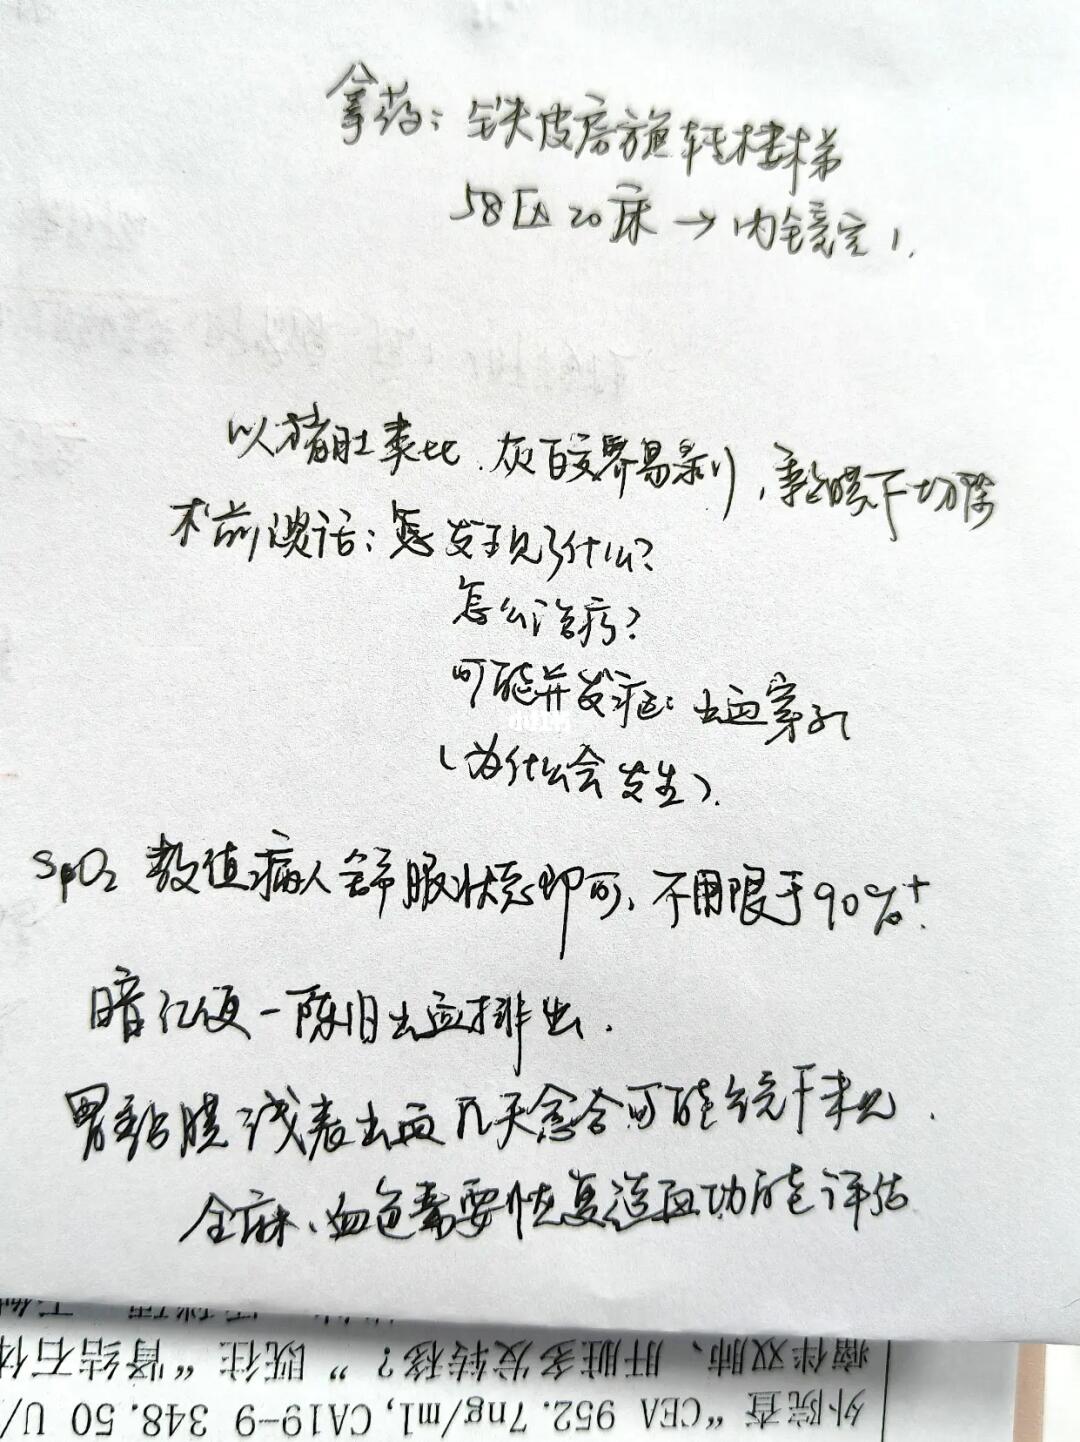 拿药：铁皮房旋转楼梯
58区20床→内镜室1.
以猪肚类比.灰白交界易剥,黏膜下切除
术前谈话：发现了什么？
怎么治疗？
可能并发症：出血穿孔
（为什么会发生）.
SpO₂ 数值病人舒服状态即可,不用限于90%+.
暗红便－陈旧出血排出.
胃黏膜浅表出血几天愈合可能镜下未见.
全麻、血色素需要恢复造血功能评估
瘤伴双肺、肝脏多发转移？”既往“肾结石体
外院查“CEA 952.7ng/ml,CA19-9 348.50 U/